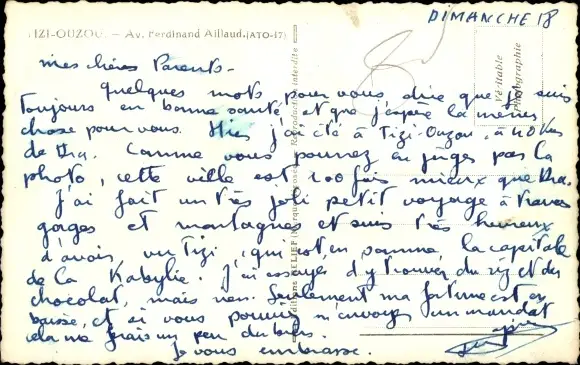 DIMANCHE 18
TIZI-OUZOU. — Av. Ferdinand Aillaud. (ATO-17)
Mes chères Parents -
Quelques mots pour vous dire que je suis
toujours en bonne santé, et que j'espère la même
chose pour vous. Hier j'ai été à Tizi-Ouzou, à 40 Kms
de Dra. Comme vous pourrez en juger par la
photo, cette ville est 100 fois mieux que Dra.
J'ai fait un très joli petit voyage à travers
gorges et montagnes et suis très heureux
d'avoir vu Tizi, qui est en somme, la capitale
de la Kabylie. J'ai essayé d'y trouver du riz et du
chocolat, mais non. Seulement ma fortune est en
baisse, et si vous pouviez m'envoyer un mandat
cela me ferais un peu du bien.
Je vous embrasse.
Véritable
Photographie
Reproduction Interdite